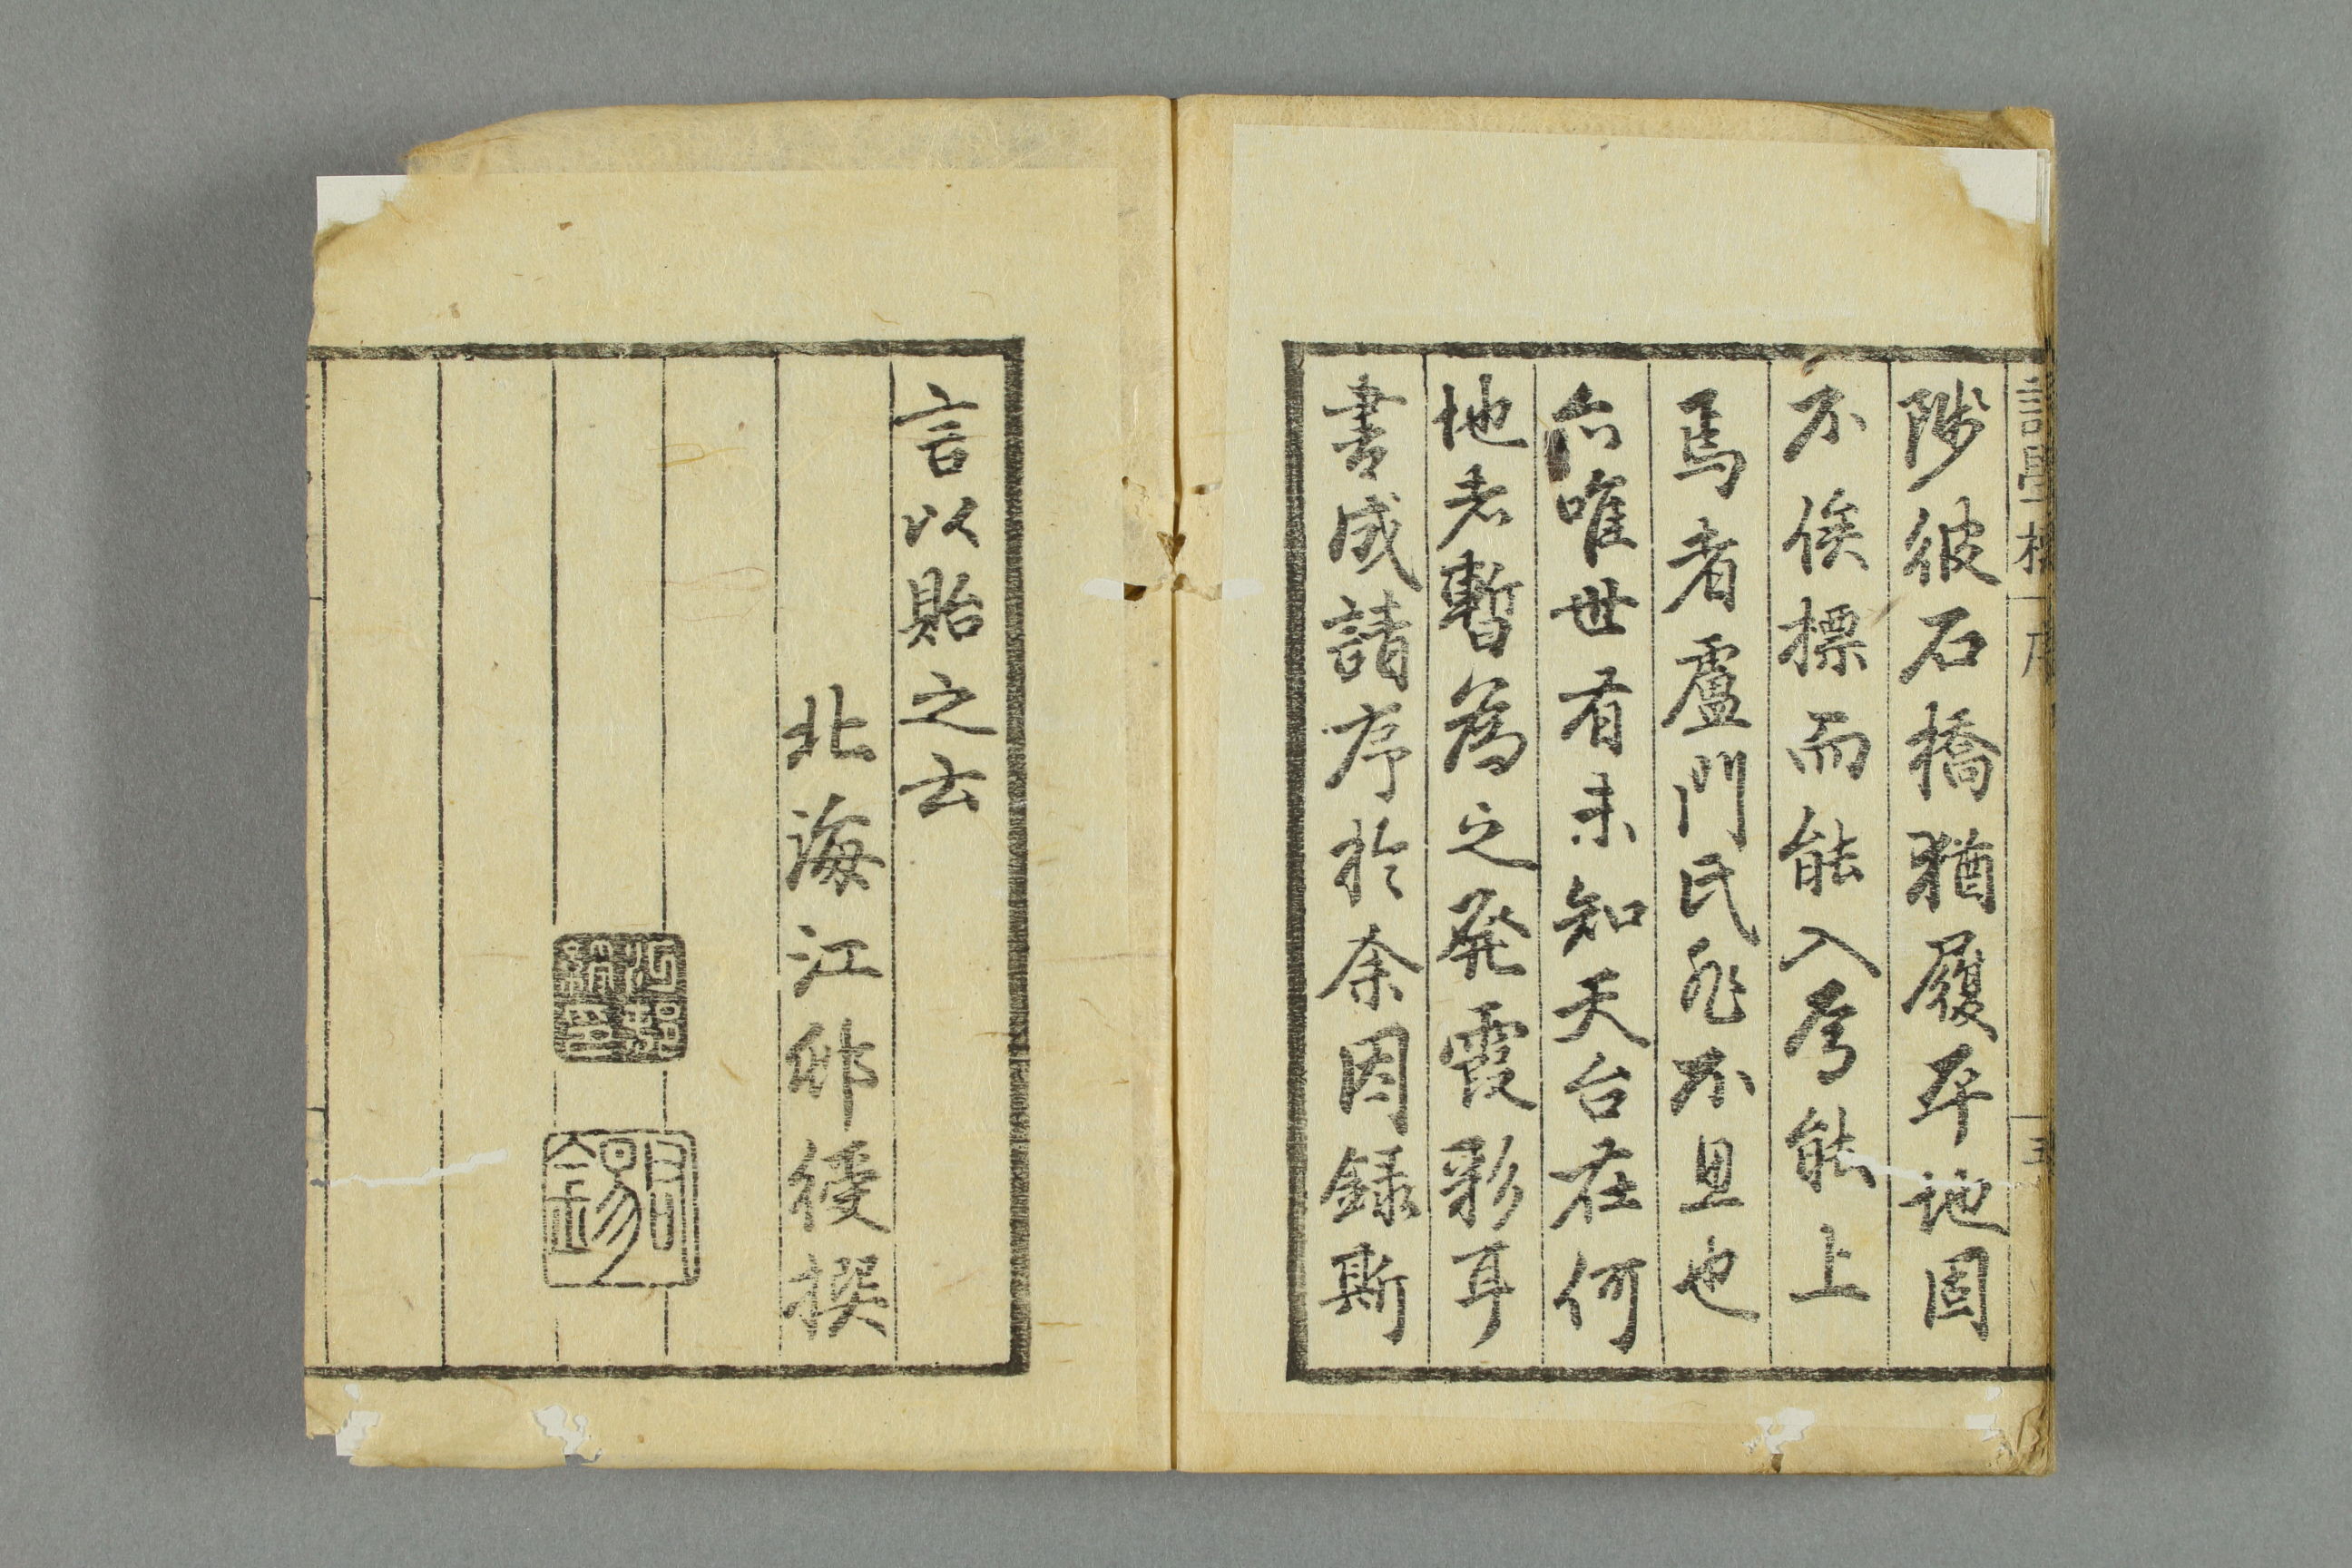 陟彼石橋猶履平地固
不俟標而能入焉能上
焉者盧門氏飛不且也
亦唯世有未知天台在何
地者暫為之発霞彩耳
書成請序於余因録斯
言以貽之云
北海江邨綬撰
江邨綬印
君錫